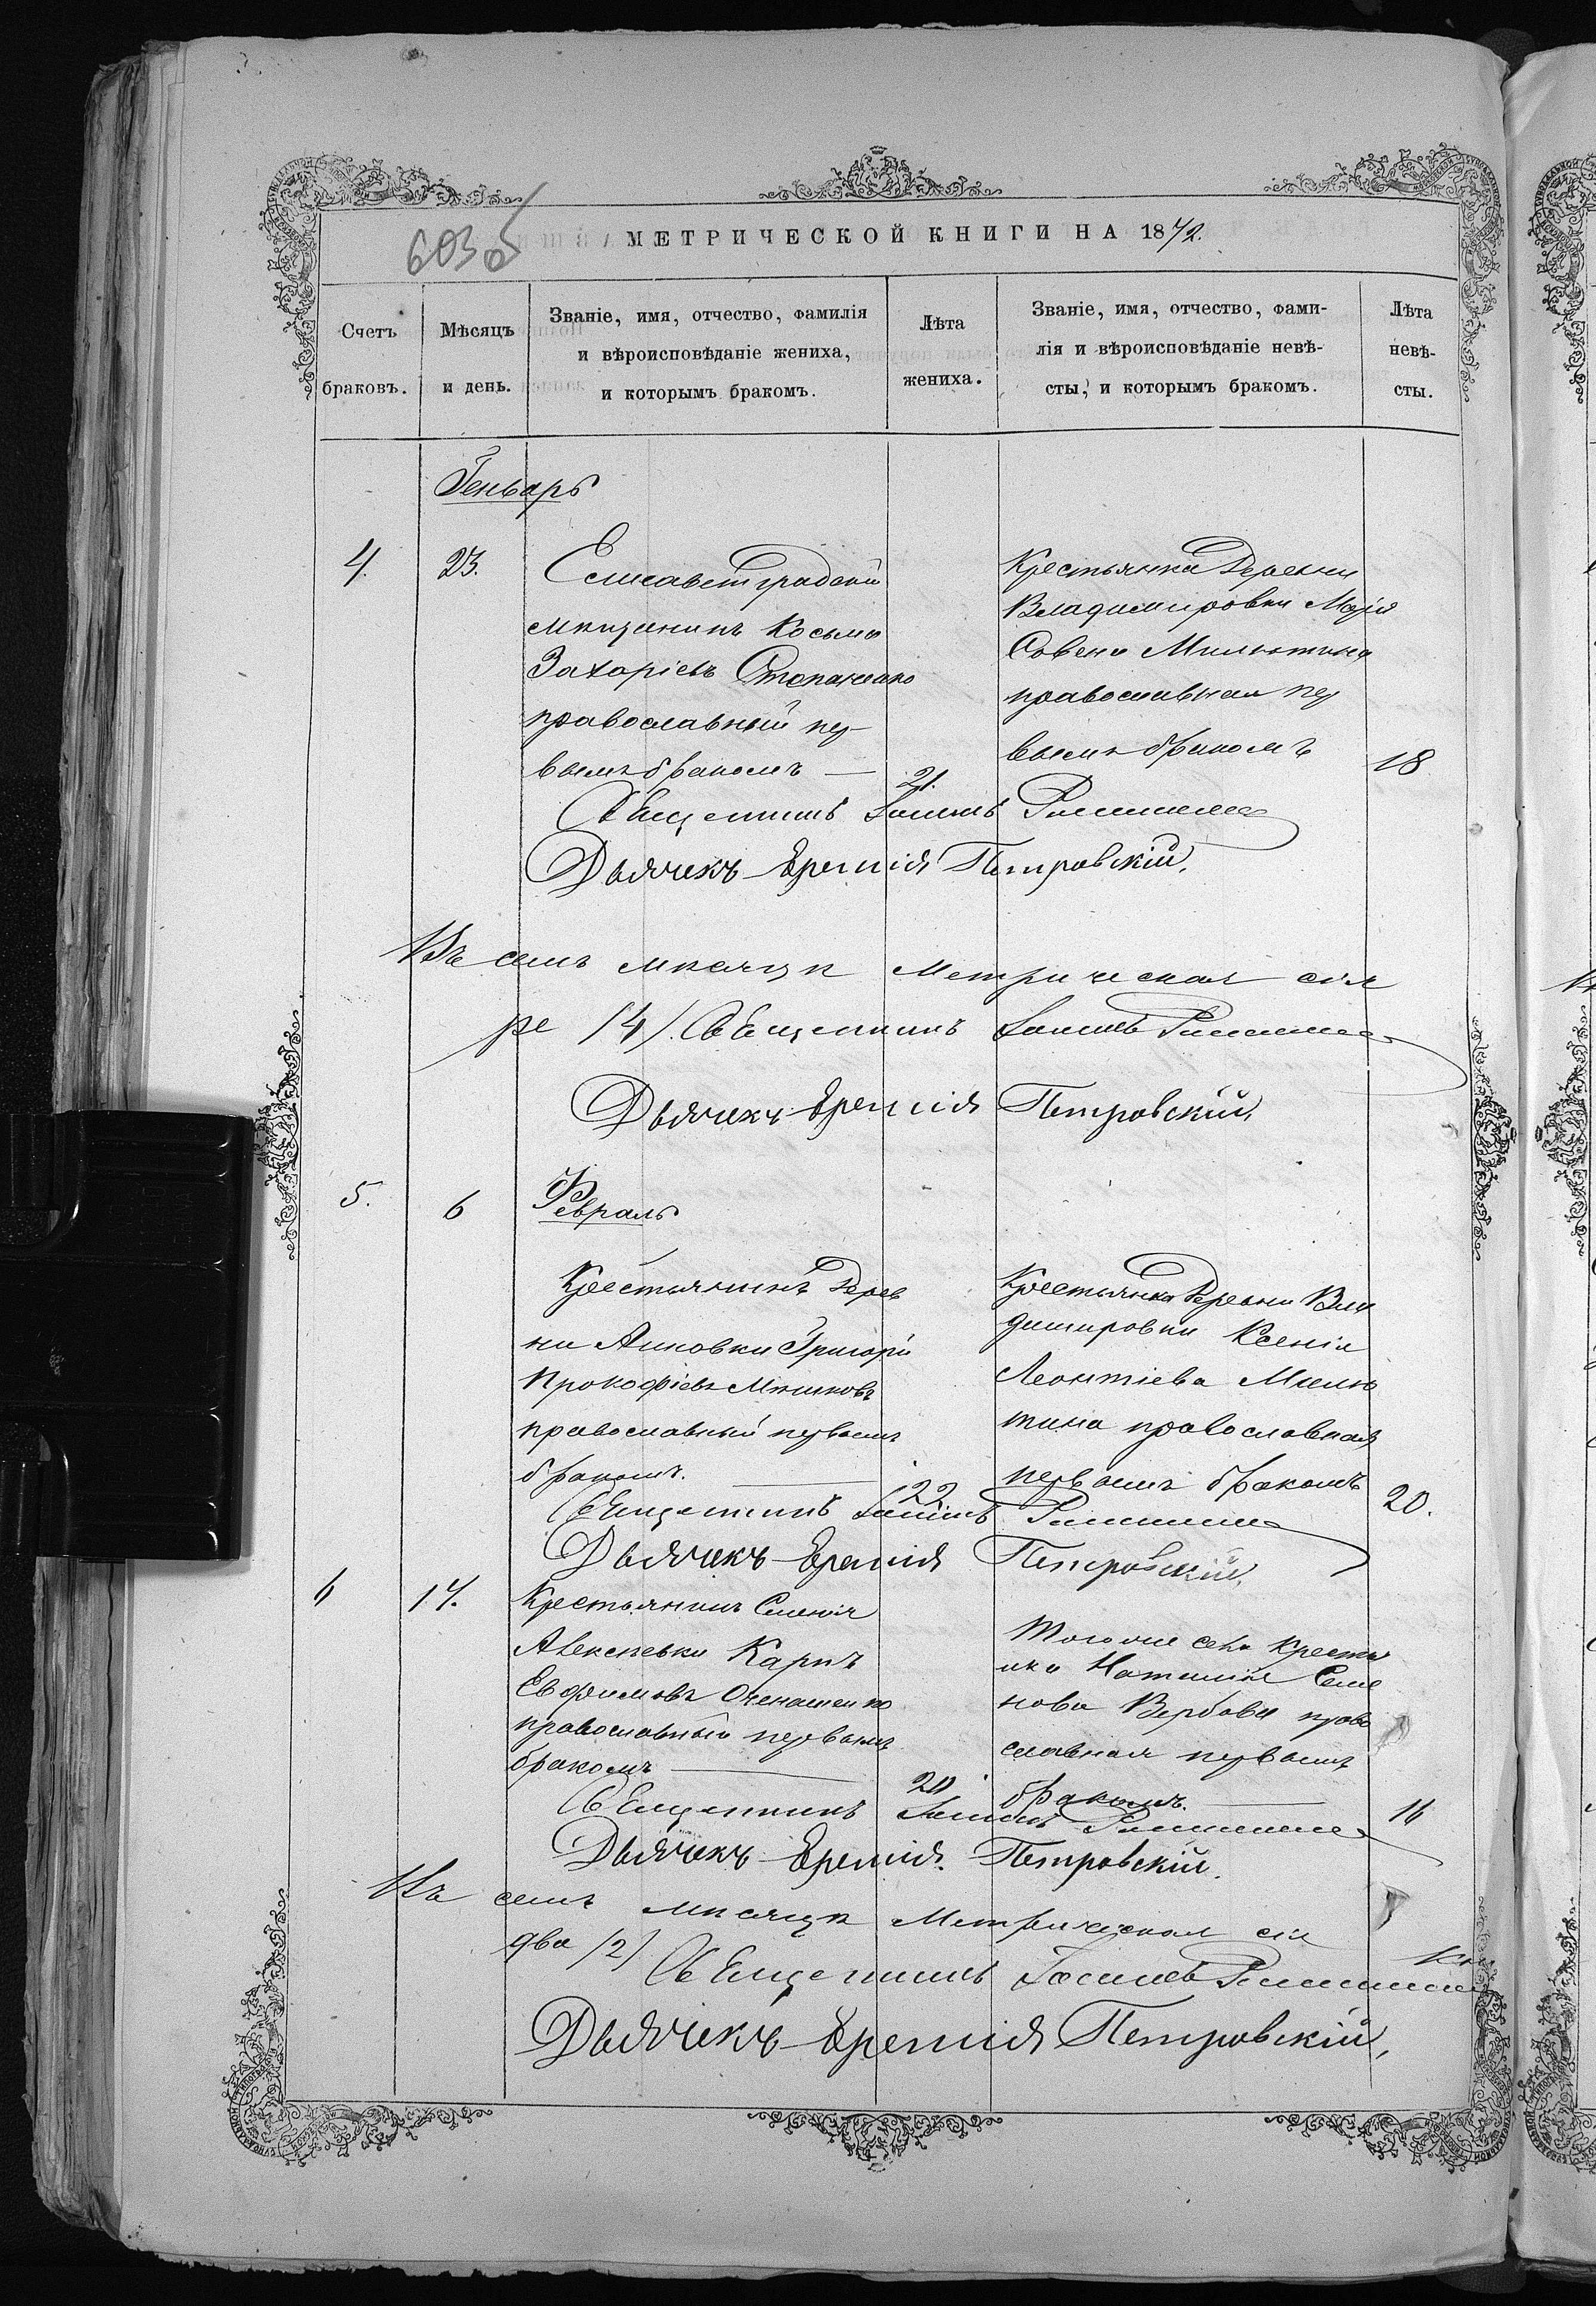 603 об
МЕТРИЧЕСКОЙ КНИГИ НА 1872.
Счетъ браковъ.
Мѣсяцъ и день.
Званіе, имя, отчество, фамилія
и вѣроисповѣданіе жениха,
и которымъ бракомъ.
Лѣта
жениха.
Званіе, имя, отчество, фами-
лія и вѣроисповѣданіе невѣ-
сты, и которымъ бракомъ.
Лѣта
невѣ-
сты.
Генварь
4. 23.
Елисаветградскій
мѣщанинъ Косьма
Захаріевъ Степаненко
православный пер-
вымъ бракомъ — 21.
Крестьянка Деревни
Владимировки Марія
Савена Милютина
православная пер
вымъ бракомъ 18
Священникъ
Дьячекъ Еремія Петровскій.
Въ семъ мѣсяцѣ метрическая сія
ре /4/. Священникъ
Дьячекъ Еремія Петровскій,
5. 6 Февраль
Крестьянинъ Дерев
ни Анновки Григорій
Прокофіевъ Мѣшковъ
православный первымъ
бракомъ. — 22
Крестьянка Деревни Вла
димировки Ксенія
Леонтіева Милю
тина православная
первымъ бракомъ 20.
Священникъ
Дьячекъ Еремія Петровскій,
6 14.
Крестьянинъ Селенія
Алексѣевки Карпъ
Евфимовъ
православный первымъ
бракомъ — 20
Того же села Крестья
нка Наталія Семе
нова Вербова право
славная первымъ
бракомъ. — 16
Священникъ
Дьячекъ Еремія Петровскій.
Въ семъ мѣсяцѣ Метрическая сія
два /2/
Священникъ
Дьячекъ Еремія Петровскій,